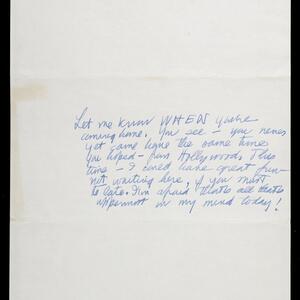 Let me know WHEN you're
coming home. You see — you never
yet came home the same time
you hoped — from Hollywood. This
time — I could have great fun —
not waiting here, if you must
be late. I'm afraid that's all that's
uppermost in my mind today!